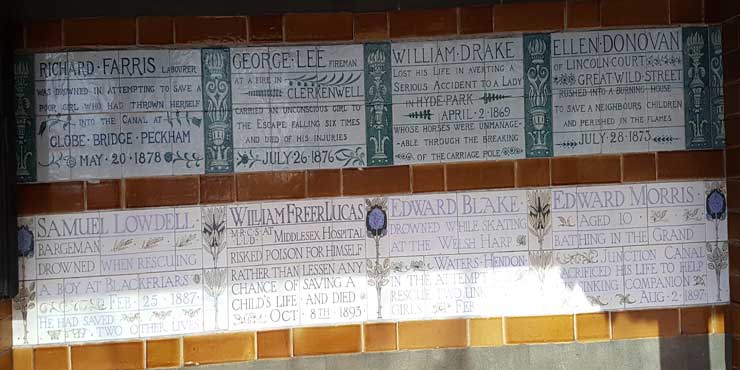 RICHARD·FARRIS LABOURER
WAS DROWNED IN ATTEMPTING TO SAVE A
POOR GIRL WHO HAD THROWN HERSELF
INTO THE CANAL AT
GLOBE·BRIDGE·PECKHAM
MAY·20·1878
GEORGE·LEE FIREMAN
AT A FIRE IN
CLERKENWELL
CARRIED AN UNCONSCIOUS GIRL TO
THE ESCAPE FALLING SIX TIMES
AND DIED OF HIS INJURIES
JULY·26·1876
WILLIAM·DRAKE
LOST HIS LIFE IN AVERTING A
SERIOUS ACCIDENT TO A LADY
IN HYDE·PARK
APRIL·2·1869
WHOSE HORSES WERE UNMANAGE-
ABLE THROUGH THE BREAKING
OF THE CARRIAGE POLE
ELLEN·DONOVAN
OF LINCOLN COURT
GREAT WILD·STREET
RUSHED INTO A BURNING HOUSE
TO SAVE A NEIGHBOURS CHILDREN
AND PERISHED IN THE FLAMES
JULY·28·1873
SAMUEL LOWDELL
BARGEMAN
DROWNED WHEN RESCUING
A BOY AT BLACKFRIARS
FEB·25·1887
HE HAD SAVED TWO OTHER LIVES
WILLIAM FREER LUCAS
M·R·C·S· L·L·D· AT MIDDLESEX HOSPITAL
RISKED POISON FOR HIMSELF
RATHER THAN LESSEN ANY
CHANCE OF SAVING A
CHILD'S LIFE AND DIED
OCT·8TH·1893
EDWARD BLAKE
DROWNED WHILE SKATING
AT THE WELSH HARP
WATERS·HENDON
IN THE ATTEMPT
RESCUE TWO
GIRLS FEB
EDWARD MORRIS
AGED 10
BATHING IN THE GRAND
JUNCTION CANAL
SACRIFICED HIS LIFE TO HELP
SINKING COMPANION
AUG·2·1897